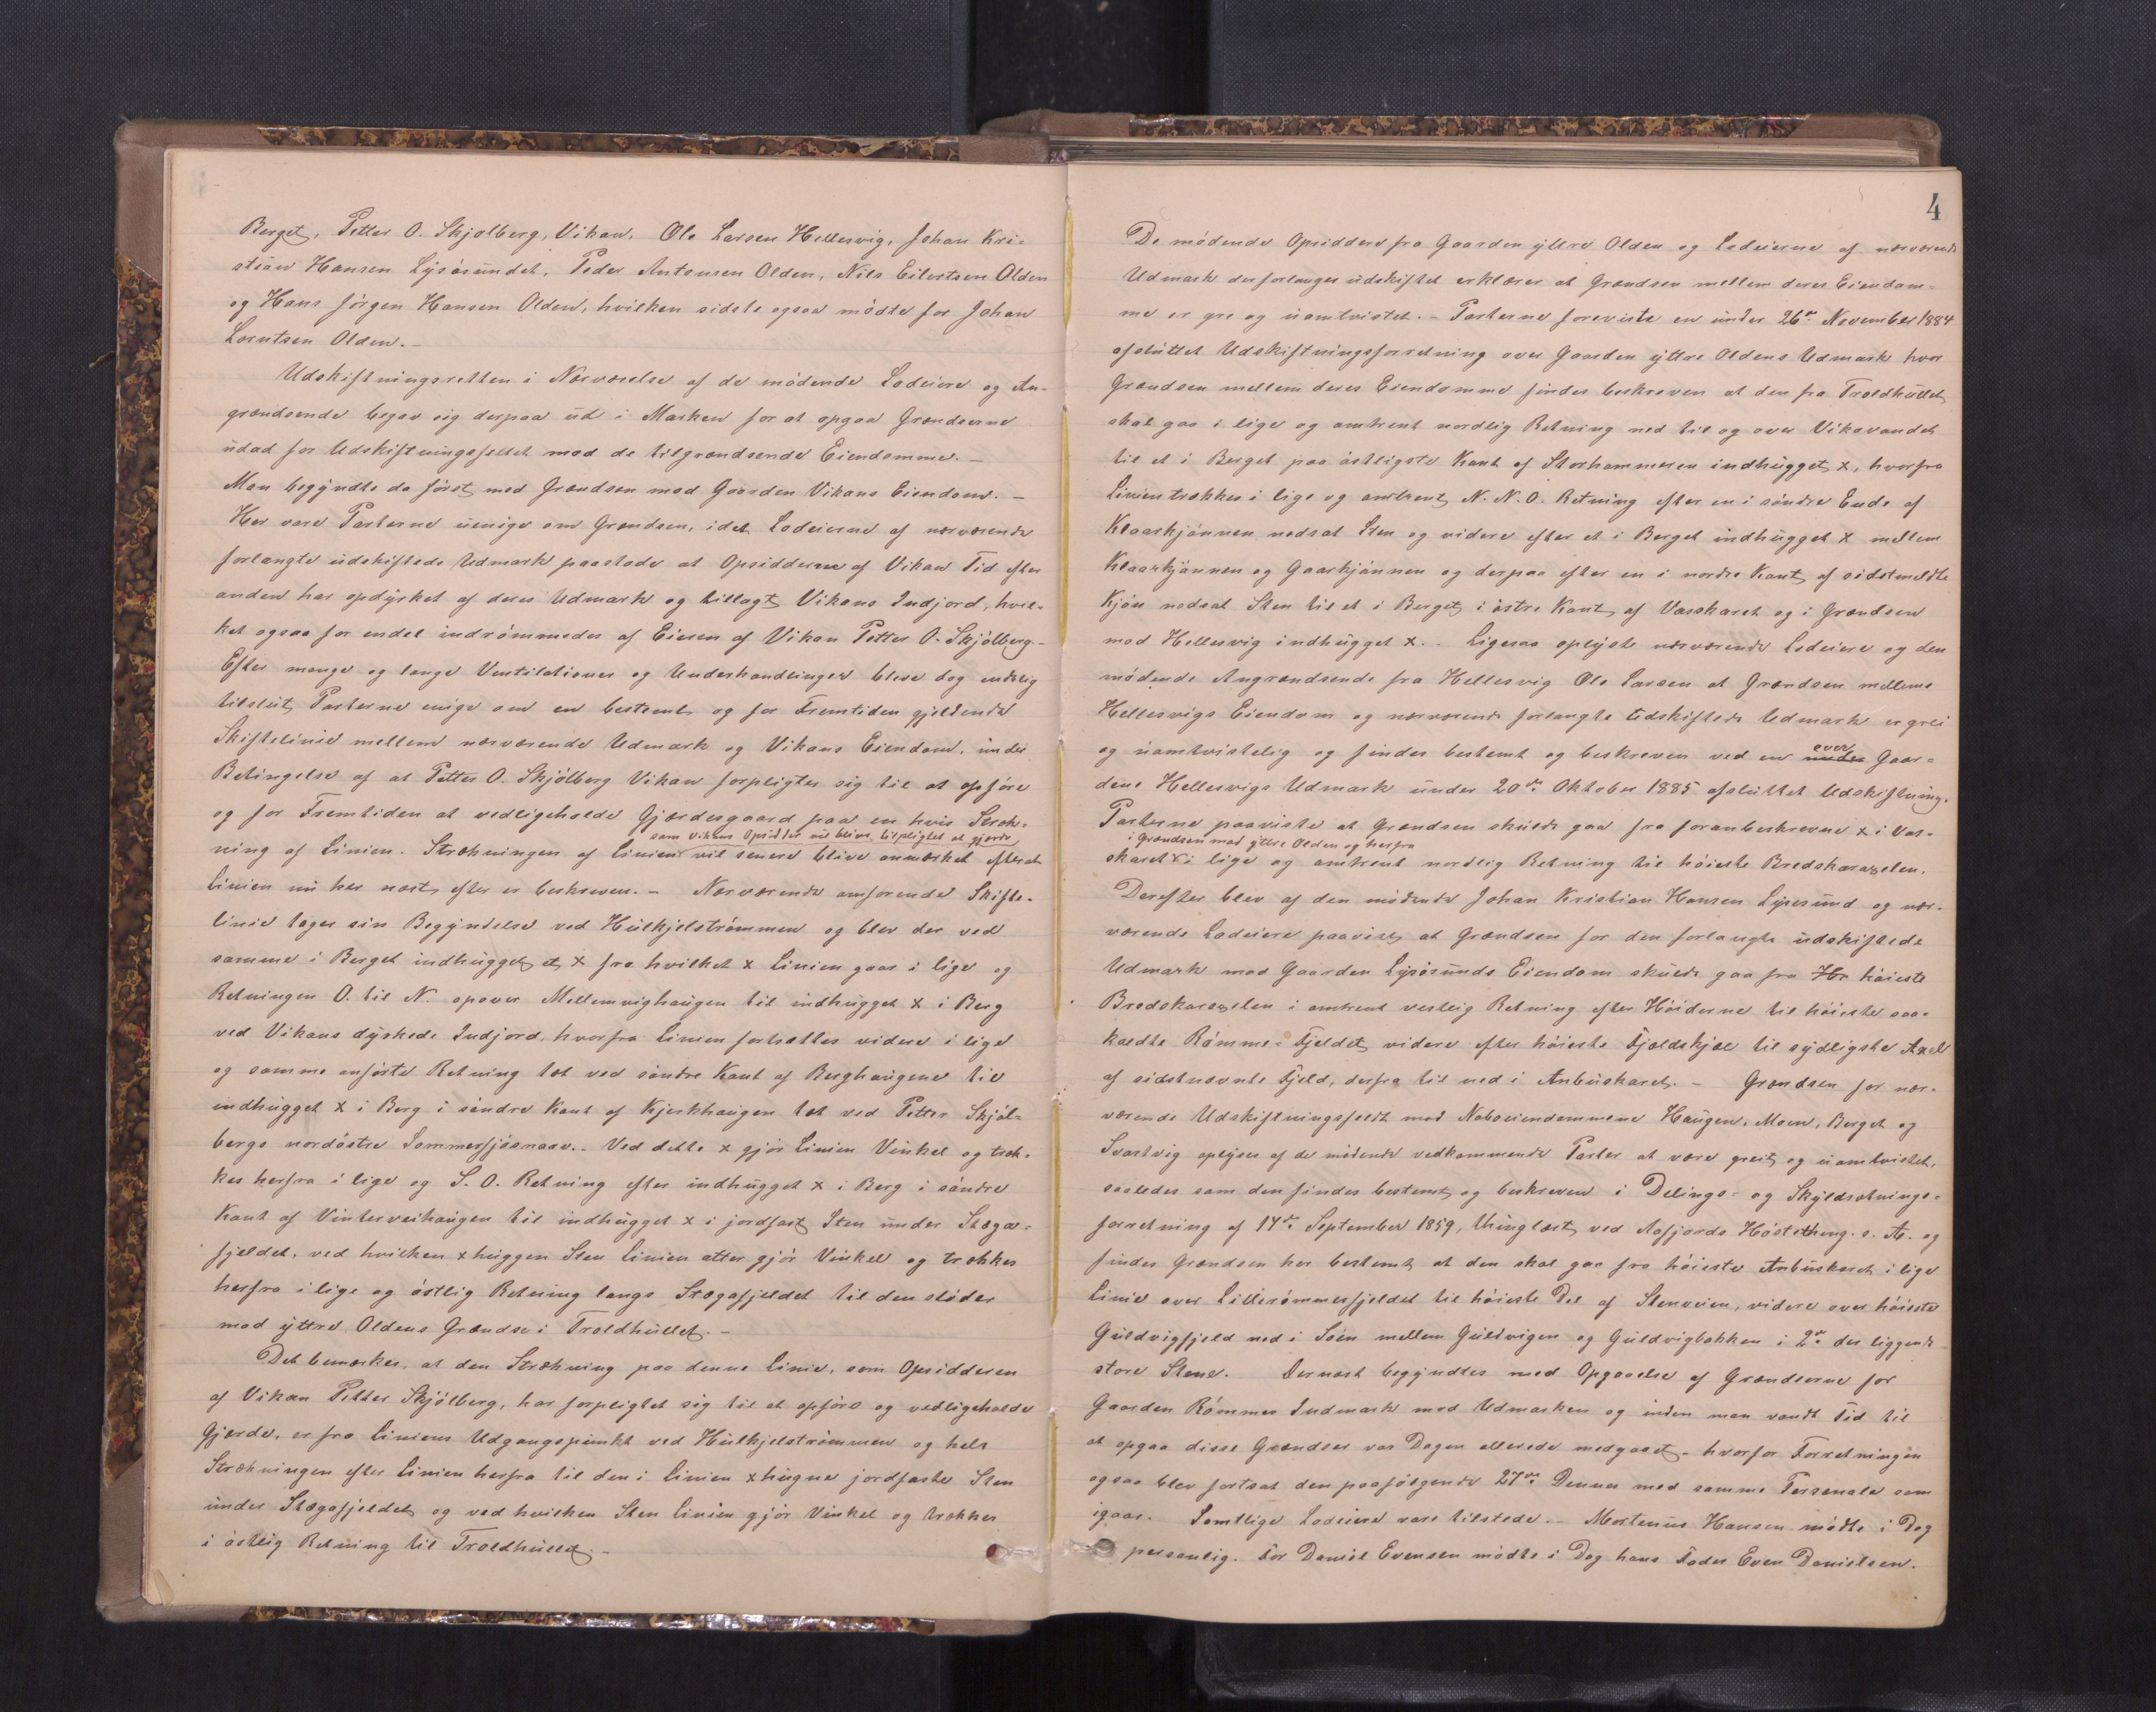 Berget, Petter O. Skjølberg, Vikan, Ole Larsen Hellesvig, Johan Kri-
stian Hansen Lysøsundet, Peder Antonsen Olden, Nils Eilertsen Olden
og Hans Jørgen Hansen Olden, hvilken sidste ogsaa mødte for Johan
Lorntsen Olden.–
Udskiftningsretten i Nærværelse af de mødende Lodeiere og An-
grændsende begav sig derpaa ud i Marken for at opgaa Grændserne
udad for Udskiftningsfeltet mod de tilgrændsende Eiendomme.–
Man begyndte da først med Grændsen mod Gaarden Vikans Eiendom.–
Her vare Parterne uenige om Grændsen, idet Lodeierne af nærværende
forlangte udskiftede Udmark paastode at Opsidderne af Vikan Tid efter
anden har opdyrket af deres Udmark og tillagt Vikans Indjord, hvil-
ket ogsaa for endel indrømmedes af Eieren af Vikan Petter O. Skjølberg.–
Efter mange og lange Ventilationer og Underhandlinger bleve dog endelig
tilslut Parterne enige om en bestemt og for Fremtiden gjeldende
Skiftelinie mellem nærværende Udmark og Vikans Eiendom, under
Betingelse af at Petter O. Skjølberg Vikan forpligter sig til at opføre
og for Fremtiden at vedligeholde Gjærdesgaard paa en hvis Stræk-
som Vikans Opsidder vil blive tilpligtet at gjærde
ning af Linien. Strækningen af Linien vil senere blive anmærket efterat
Linien nu her næst efter er beskreven.– Nærværende omforende Skifte-
linie tager sin Begyndelse ved Hulkjelstrømmen og blev der ved
samme i Berget indhugget et x fra hvilket x Linien gaar i lige og
Retningen O. til N. opover Mellemvighaugen til indhugget x i Berg
ved Vikans dyrkede Indjord, hvorfra Linien fortsættes videre i lige
og samme anførte Retning tæt ved søndre Kant af Berghaugene til
indhugget x i Berg i søndre Kant af Kjerkhaugen tæt ved Petter Skjøl-
bergs nordøstre Sommerfjøsnaav.. Ved dette x gjør Linien Vinkel og træk-
kes herfra i lige og S. O. Retning efter indhugget x i Berg i søndre
Kant af Vinterveihaugen til indhugget x i jordfast Sten under Stæga-
fjeldet, ved hvilken x huggen Sten Linien atter gjør Vinkel og trækkes
herfra i lige og østlig Retning langs Stægafjeldet til den støder
mod yttre Oldens Grændse i Troldhullet.–
Det bemærkes, at den Strækning paa denne Linie, som Opsidderen
af Vikan Petter Skjølberg, har forpligtet sig til at opføre og vedligeholde
Gjærde, er fra Liniens Udgangspunkt ved Hulkjelstrømmen og hele
Strækningen efter Linien herfra til den i Linien x hugne jordfaste Sten
under Stægafjeldet og ved hvilken Sten Linien gjør Vinkel og trækkes
i østlig Retning til Troldhullet.–
4
De mødende Opsiddere fra Gaarden yttre Olden og Lodeierne af nærværende
Udmark der forlanges udskiftet erklærer at Grændsen mellem deres Eiendom-
me er gre og uomtvistet.– Parterne foreviste en under 26de November 1884
afsluttet Udskiftningsforretning over Gaarden yttre Oldens Udmark hvor
Grændsen mellem deres Eiendomme findes beskreven at den fra Troldhullet
skal gaa i lige og omtrent nordlig Retning ned til og over Vikavandet
til et i Berget paa østligste Kant af Storhammeren indhugget x, hvorfra
Linien trækkes i lige og omtrent N. N. O. Retning efter en i søndre Ende af
Klaarkjønnen nedsat Sten og videre efter et i Berget indhugget x mellem
Klaarkjønnen og Gaarkjønnen og derpaa efter en i nordre Kant af sidstmeldte
Kjøn nedsat Sten til et i Berget i østre Kant af Vasskaret og i Grændsen
mod Hellesvig indhugget x.. Ligesaa oplyste nærværende Lodeiere og den
mødende Angrændsende fra Hellesvig Ole Larsen at Grændsen mellem
Hellesvigs Eiendom og nærværende forlangte udskiftede Udmark er grei
og uomtvistelig og findes bestemt og beskreven ved en under over Gaar-
dens Hellesvigs Udmark under 20de Oktober 1885 afsluttet Udskiftning.
Parterne paaviste at Grændsen skulde gaa fra foranbeskrevne x i Vas-
i Grændsen mod yttre Olden og herfra
skaret i lige og omtrent nordlig Retning til høieste Bredskaraxelen.
Derefter blev af den mødende Johan Kristian Hansen Lysøsund og nær-
værende Lodeiere paavist at Grændsen for den forlangte udskiftede
Udmark mod Gaarden Lysøsunds Eiendom skulde gaa fra Hø høieste
Bredskaraxelen i omtrent vestlig Retning efter Høiderne til høieste saa-
kaldte Rømme-Fjeldet videre efter høieste Fjældskjæl til sydligste Axel
af sidstnævnte Fjeld, derfra til ned i Anbuskaret.– Grændsen for nær-
værende Udskiftningsfeldt mod Naboeiendommene Haugen, Moen, Berget og
Svartvig oplyses af de mødende vedkommende Parter at være greit og uomtvistet,
saaledes som den findes bestemt og beskreven i Delings- og Skyldsætnings-
forretning af 14de September 1859, thinglæst ved Aafjords Høstthing s. A. og
findes Grændsen her bestemt at den skal gaa fra høieste Anbuskaret i lige
Linie over Lillerømmesfjeldet til høieste Del af Stenveien, videre over høieste
Guldvigfjeld ned i Søen mellem Guldvigen og Guldvigbakken i 2de der liggende
store Stene. Dernæst begyndtes med Opgaaelse af Grændserne for
Gaarden Rømmes Indmark mod Udmarken og inden man vandt Tid til
at opgaa disse Grændser var Dagen allerede medgaaet – hvorfor Forretningen
ogsaa blev fortsat den paafølgende 27de Dennes med samme Personale som
igaar. Samtlige Lodeiere vare tilstede.– Mortinus Hansen mødte i Dag
personlig. For Daniel Evensen mødte i Dag hans Fader Even Danielsen.